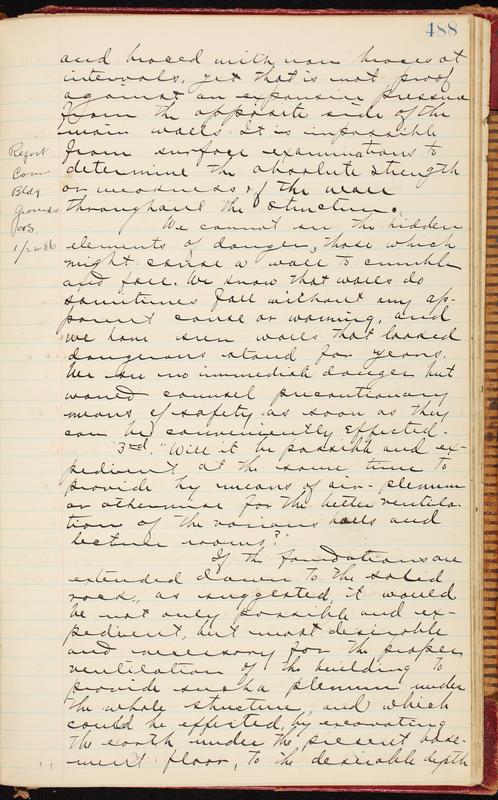 488
and braced with iron braces at
intervals, yet that is not proof
against an expansive pressure
from the opposite side of the
main walls. It is impossible
from surface examinations to
determine the absolute strength
or weakness of the wall
throughout the structure.
Report
Com.
Bldg
Grounds
1/22 86
We cannot see the hidden
elements of danger, those which
might cause a wall to crumble
and fall. We know that walls do
sometimes fall without any ap-
parent cause or warning, and
we have seen walls that looked
dangerous stand for years.
We see no immediate danger but
would counsel precautionary
means of safety as soon as they
can be conveniently effected.
"3rd. "Will it be possible and ex-
pedient at the same time to
provide by means of air-plenum
or otherwise for the better ventila-
tion of the various halls and
lecture rooms?"
If the foundations are
extended down to the solid
rock, as suggested, it would
be not only possible and ex-
pedient, but most desirable
and necessary for the proper
ventilation of the building to
provide such a plenum under
the whole structure, and which
could be effected, by excavating
the earth under the present base-
ment floor, to the desirable depth